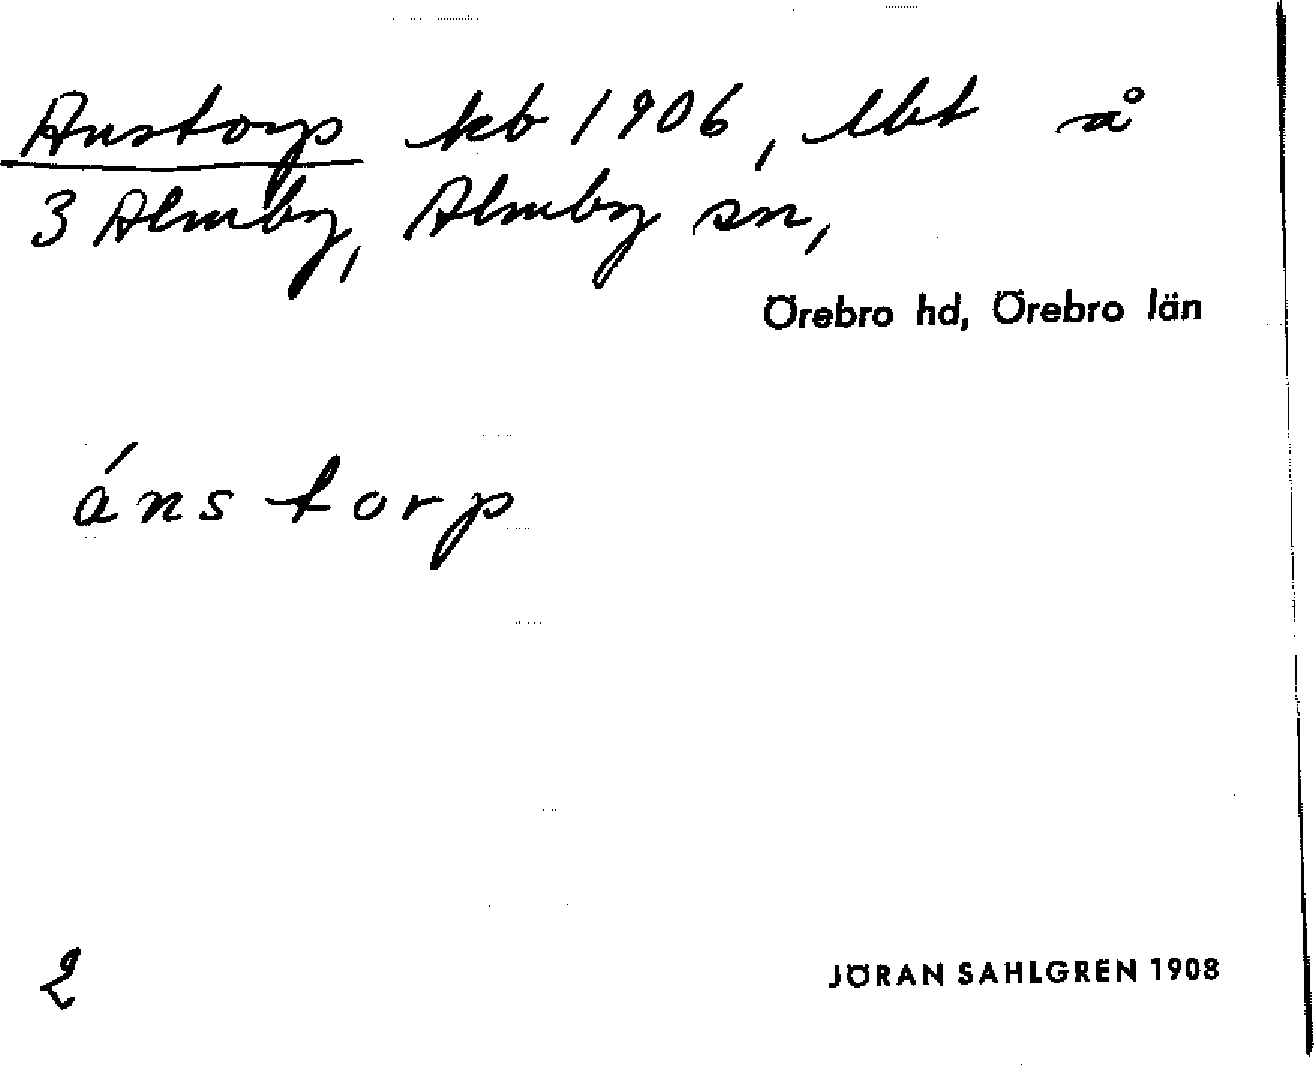 Anstorp kb 1906, lbt å
3 Almby, Almby sn,
Örebro hd, Örebro län
ánstorp
2
JÖRAN SAHLGREN 1908